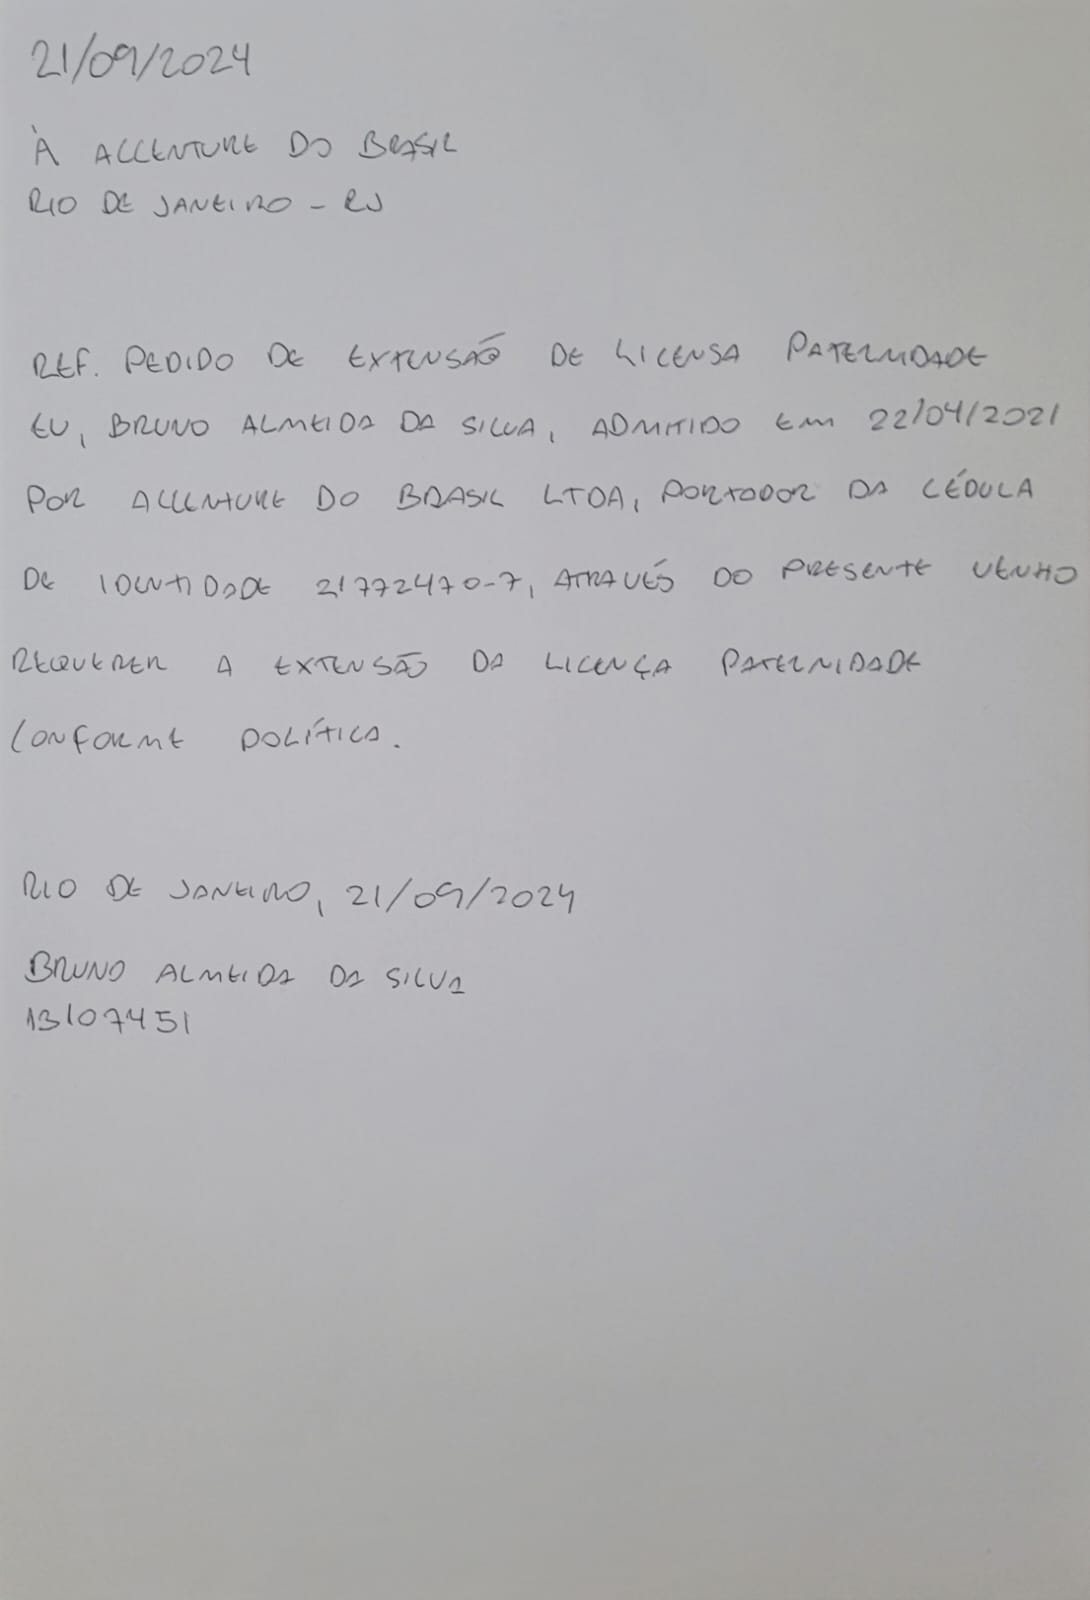 21/09/2024
À ACCENTURE DO BRASIL
RIO DE JANEIRO - RJ
REF. PEDIDO DE EXTENSÃO DE LICENSA PATERNIDADE
EU, BRUNO ALMEIDA DA SILVA, ADMITIDO EM 22/04/2021
POR ACCENTURE DO BRASIL LTDA, PORTADOR DA CÉDULA
DE IDENTIDADE 21772470-7, ATRAVÉS DO PRESENTE VENHO
REQUERER A EXTENSÃO DA LICENÇA PATERNIDADE
CONFORME POLÍTICA.
RIO DE JANEIRO, 21/09/2024
BRUNO ALMEIDA DA SILVA
13107451